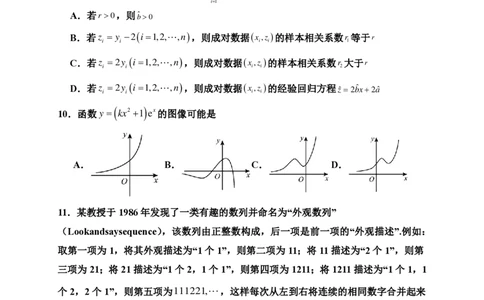 i=1
A．若r＞0，则b̂＞0
B．若zᵢ = yᵢ −2(i=1,2,⋯,n)，则成对数据(xᵢ,zᵢ)的样本相关系数r₁等于r
C．若zᵢ = 2yᵢ (i=1,2,⋯,n)，则成对数据(xᵢ,zᵢ)的样本相关系数r₂大于r
D．若zᵢ = 2yᵢ (i=1,2,⋯,n)，则成对数据(xᵢ,zᵢ)的经验回归方程ẑ = 2b̂x+2â
10．函数y = (kx²+1)eˣ的图像可能是
A． y O x B． y O x C． y O x D． y O x
11．某教授于 1986 年发现了一类有趣的数列并命名为“外观数列”
（Lookandsaysequence），该数列由正整数构成，后一项是前一项的“外观描述”.例如：
取第一项为 1，将其外观描述为“1 个 1”，则第二项为 11；将 11 描述为“2 个 1”，则第
三项为 21；将 21 描述为“1 个 2，1 个 1”，则第四项为 1211；将 1211 描述为“1 个 1，1
个 2，2 个 1”，则第五项为111221,⋯，这样每次从左到右将连续的相同数字合并起来